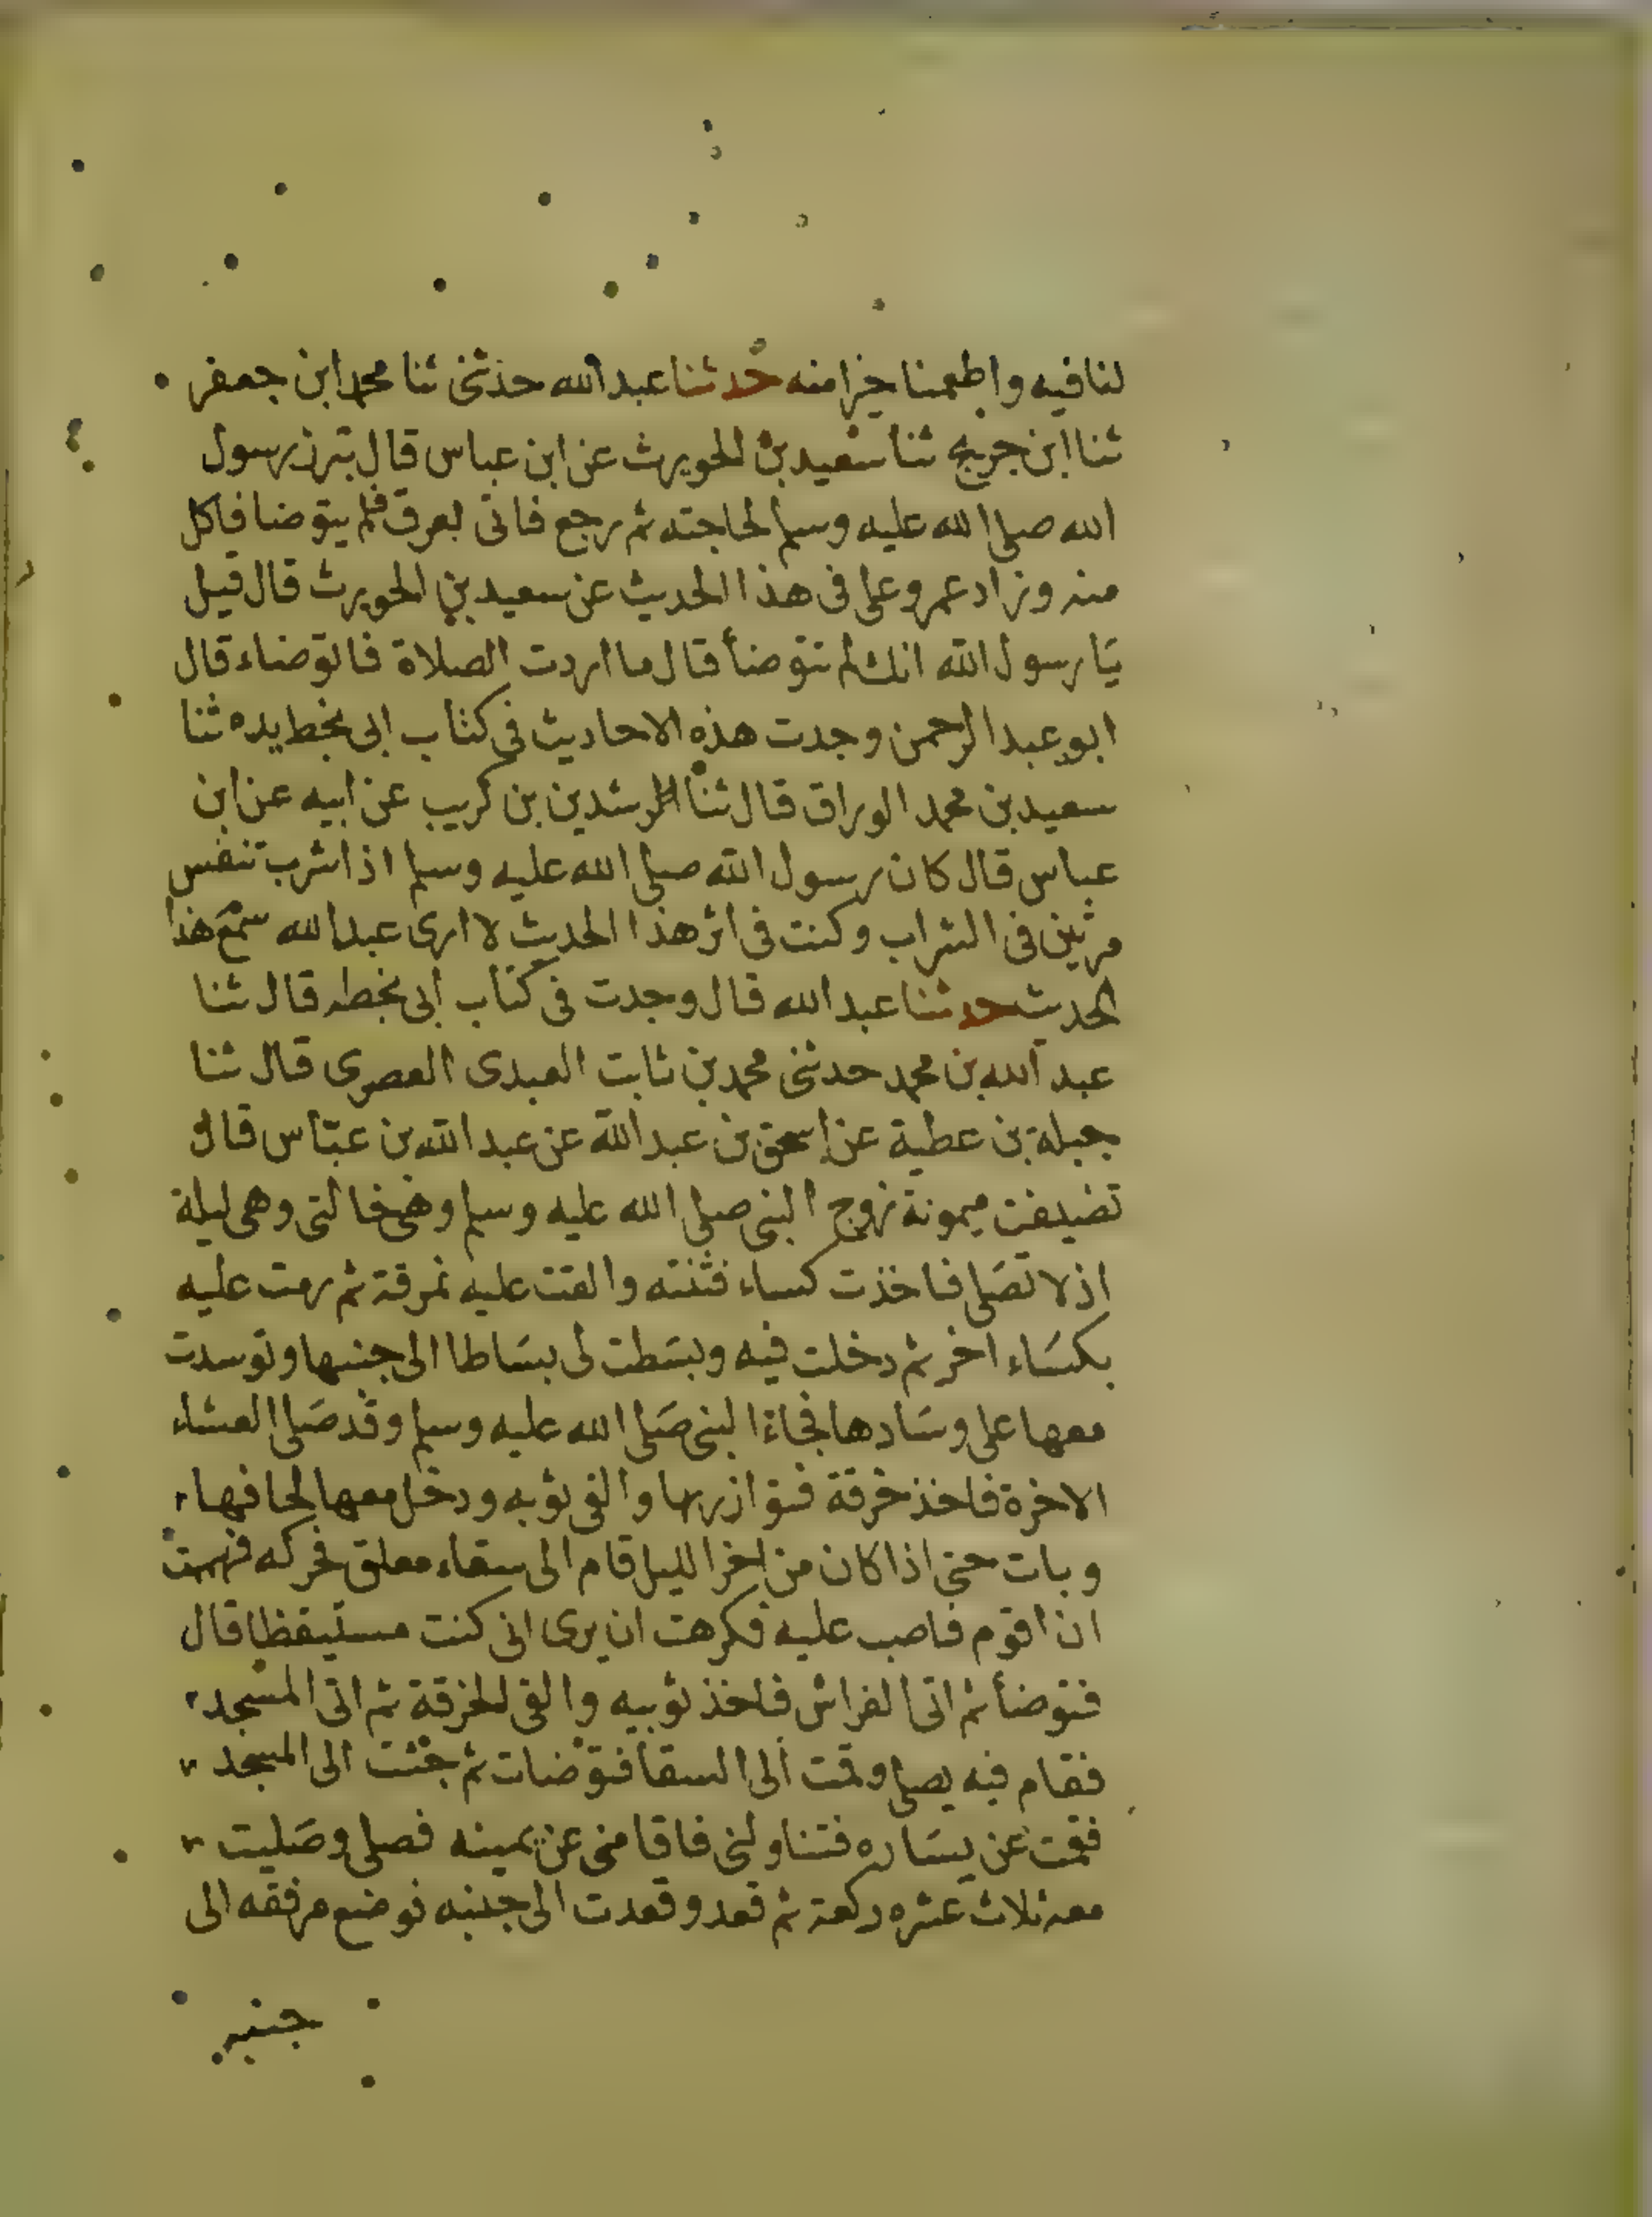 لنا فيه واطعمنا خيرا منه حدثنا عبد الله حدثنى ثنا محمد ابن جعفر
ثنا ابن جريج ثنا سعيد بن الحويرث عن ابن عباس قال تبرز رسول
الله صلى الله عليه وسلم لحاجته ثم رجع فاتى بعرق فلم يتوضا فاكل
منه وزاد عمرو على فى هذا الحديث عن سعيد بن الحويرث قال قيل
يا رسول الله انك لم تتوضأ قال ما اردت الصلاة فاتوضاء قال
ابو عبد الرحمن وجدت هذه الاحاديث فى كتاب ابى بخط يده ثنا
سعيد بن محمد الوراق قال ثنا رشدين بن كريب عن ابيه عن ابن
عباس قال كان رسول الله صلى الله عليه وسلم اذا شرب تنفس
مرتين فى الشراب وكنت فى اثر هذا الحديث لا ارى عبد الله سمع هذا
الحديث حدثنا عبد الله قال وجدت فى كتاب ابى بخطه قال ثنا
عبد الله بن محمد حدثنى محمد بن ثابت العبدى العصرى قال ثنا
جبلة بن عطية عن إسحق بن عبد الله عن عبد الله بن عباس قال
تضيفت ميمونة زوج النبى صلى الله عليه وسلم وهى خالتى وهى ليلة
اذ لا تصلى فاخذت كساء فثنته والقت عليه نمرقة ثم رمت عليه
بكساء اخر ثم دخلت فيه وبسطت لى بساطا الى جنبها وتوسدت
معها على وسادها فجاء النبى صلى الله عليه وسلم وقد صلى العشاء
الاخرة فاخذ خرقة فتوازر بها والقى ثوبه ودخل معها لحافها
وبات حتى اذا كان من اخر الليل قام الى سقاء معلق فحركه فهممت
ان اقوم فاصب عليه فكرهت ان يرى انى كنت مستيقظا قال
فتوضأ ثم اتى الفراش فاخذ ثوبيه والقى الخرقة ثم اتى المسجد
فقام فيه يصلى وقمت الى السقا فتوضات ثم جئت الى المسجد
فقمت عن يساره فتناولنى فاقامنى عن يمينه فصلى وصليت
معه ثلاث عشره ركعة ثم قعد وقعدت الى جنبه فوضع مرفقه الى
جنبه